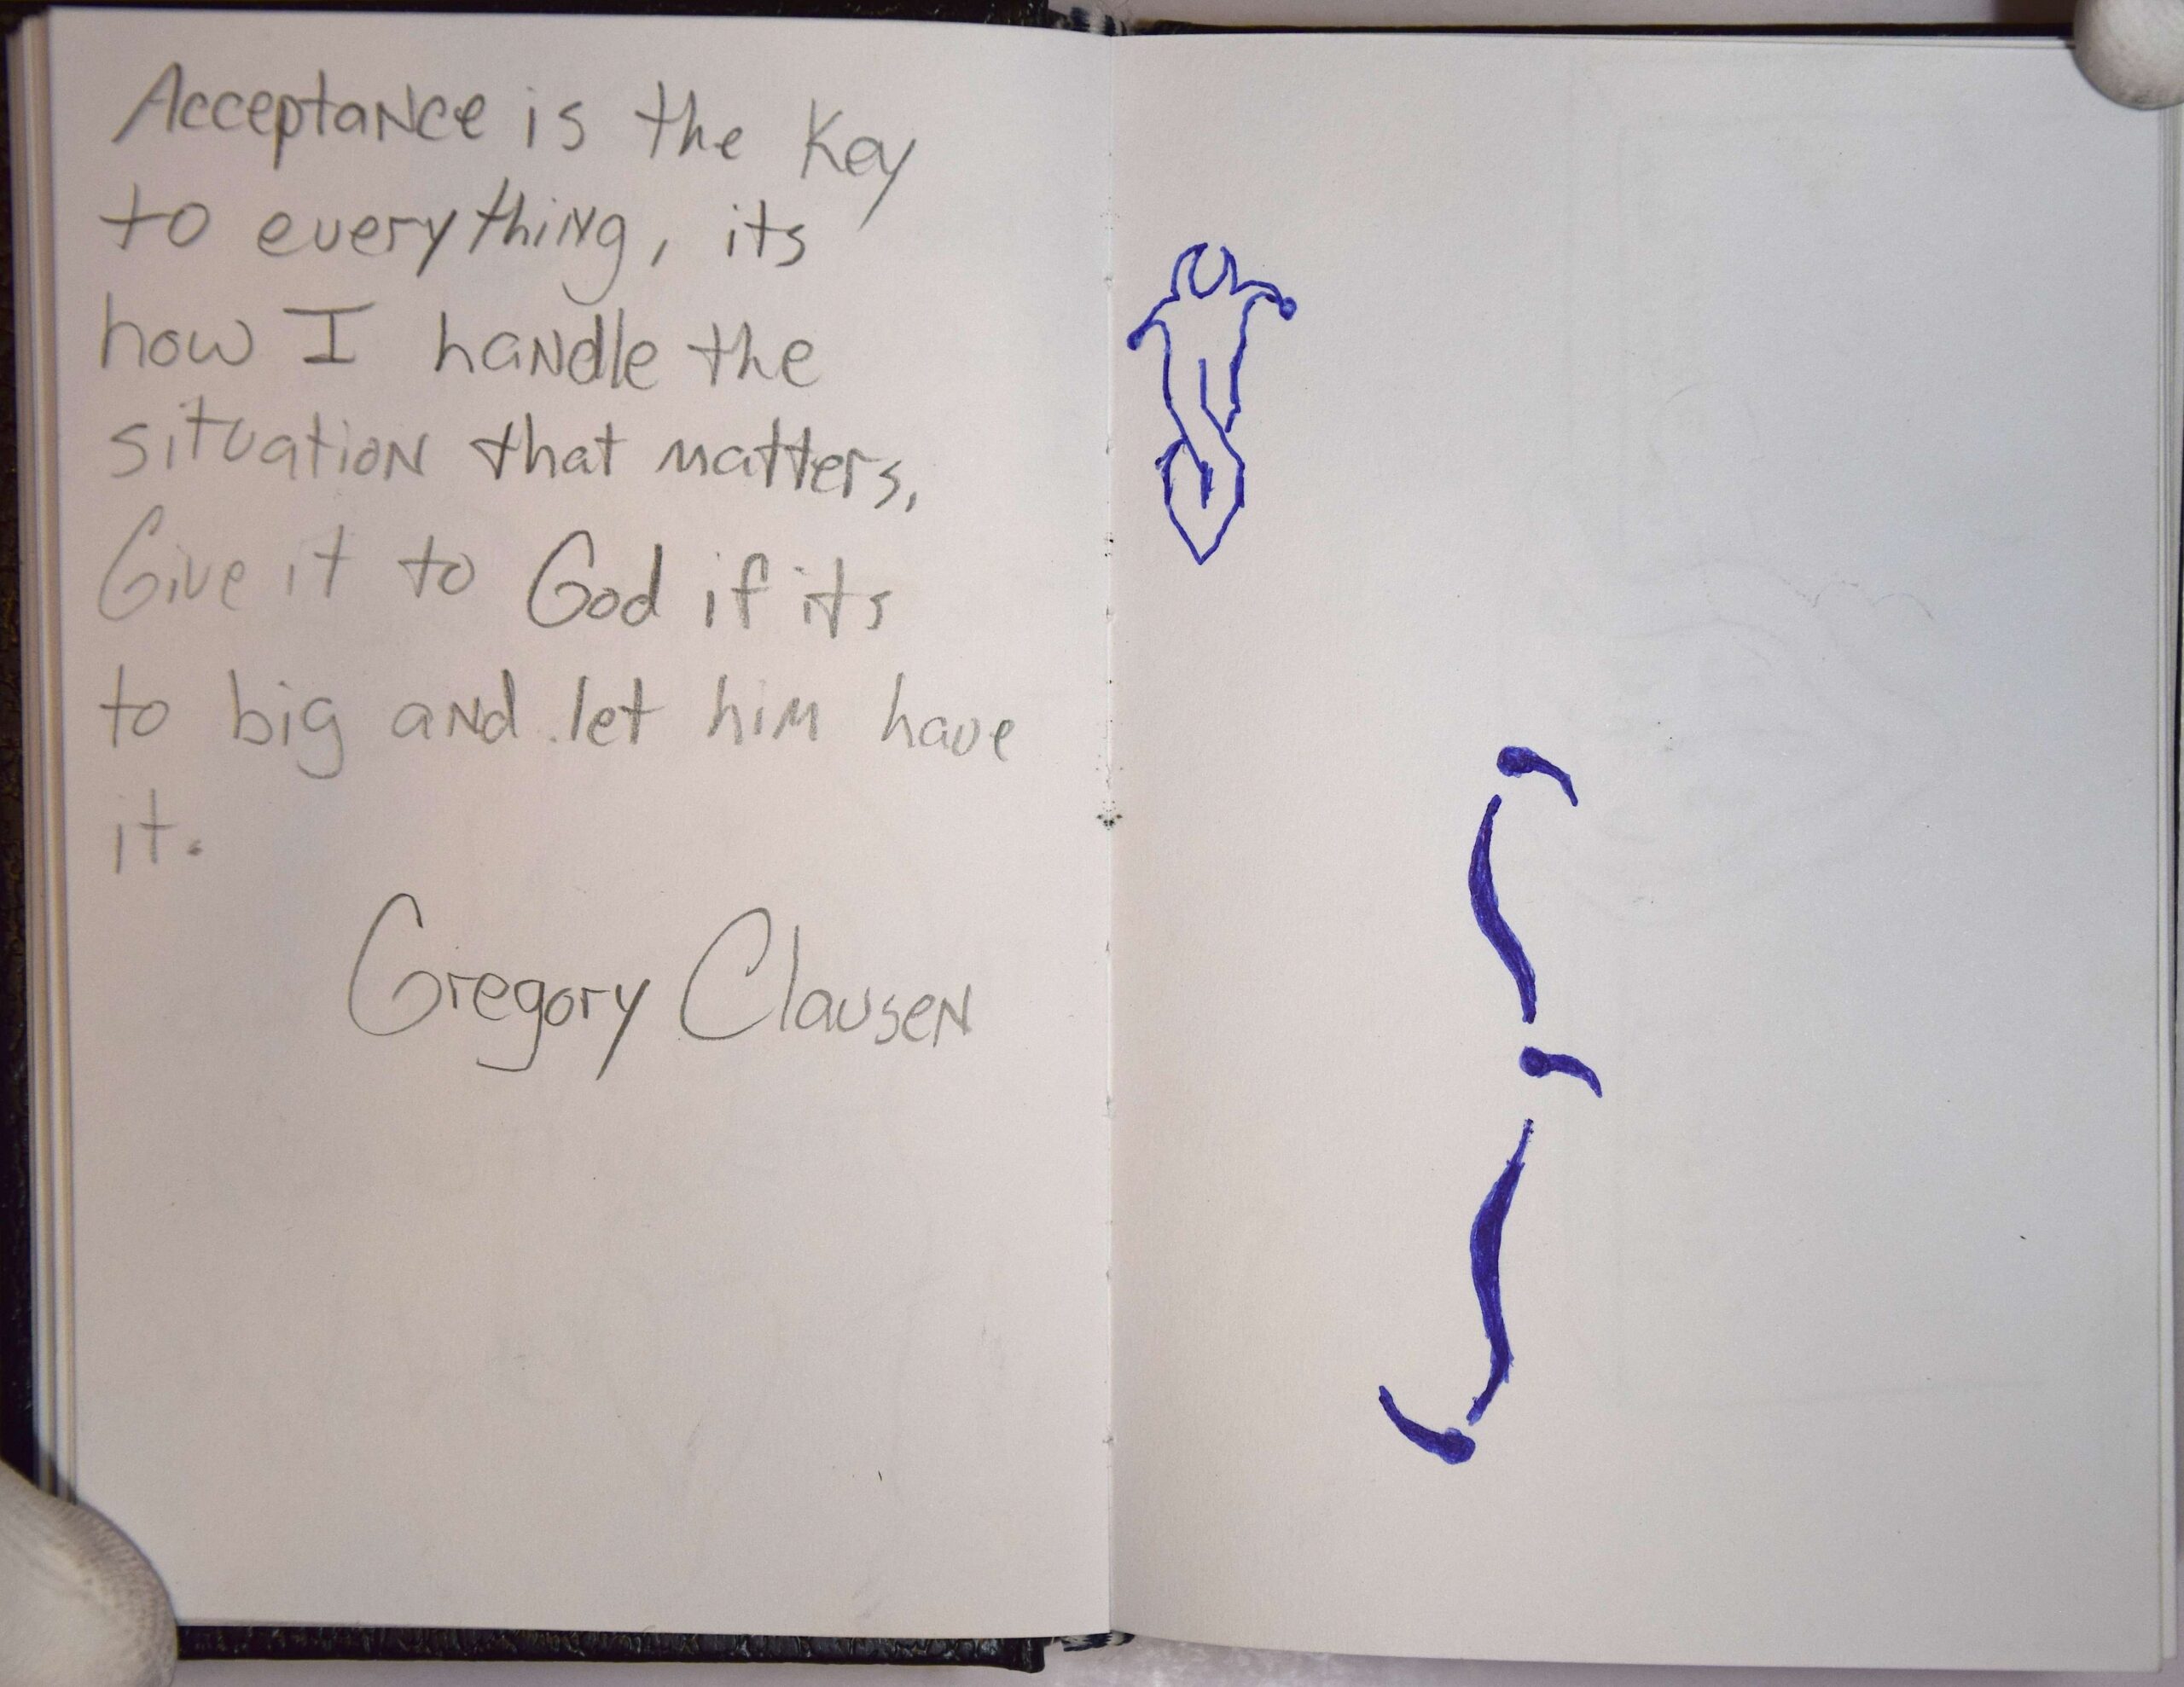 Acceptance is the Key
to everything, its
how I handle the
situation that matters,
Give it to God if its
to big and let him have
it.
Gregory Clausen